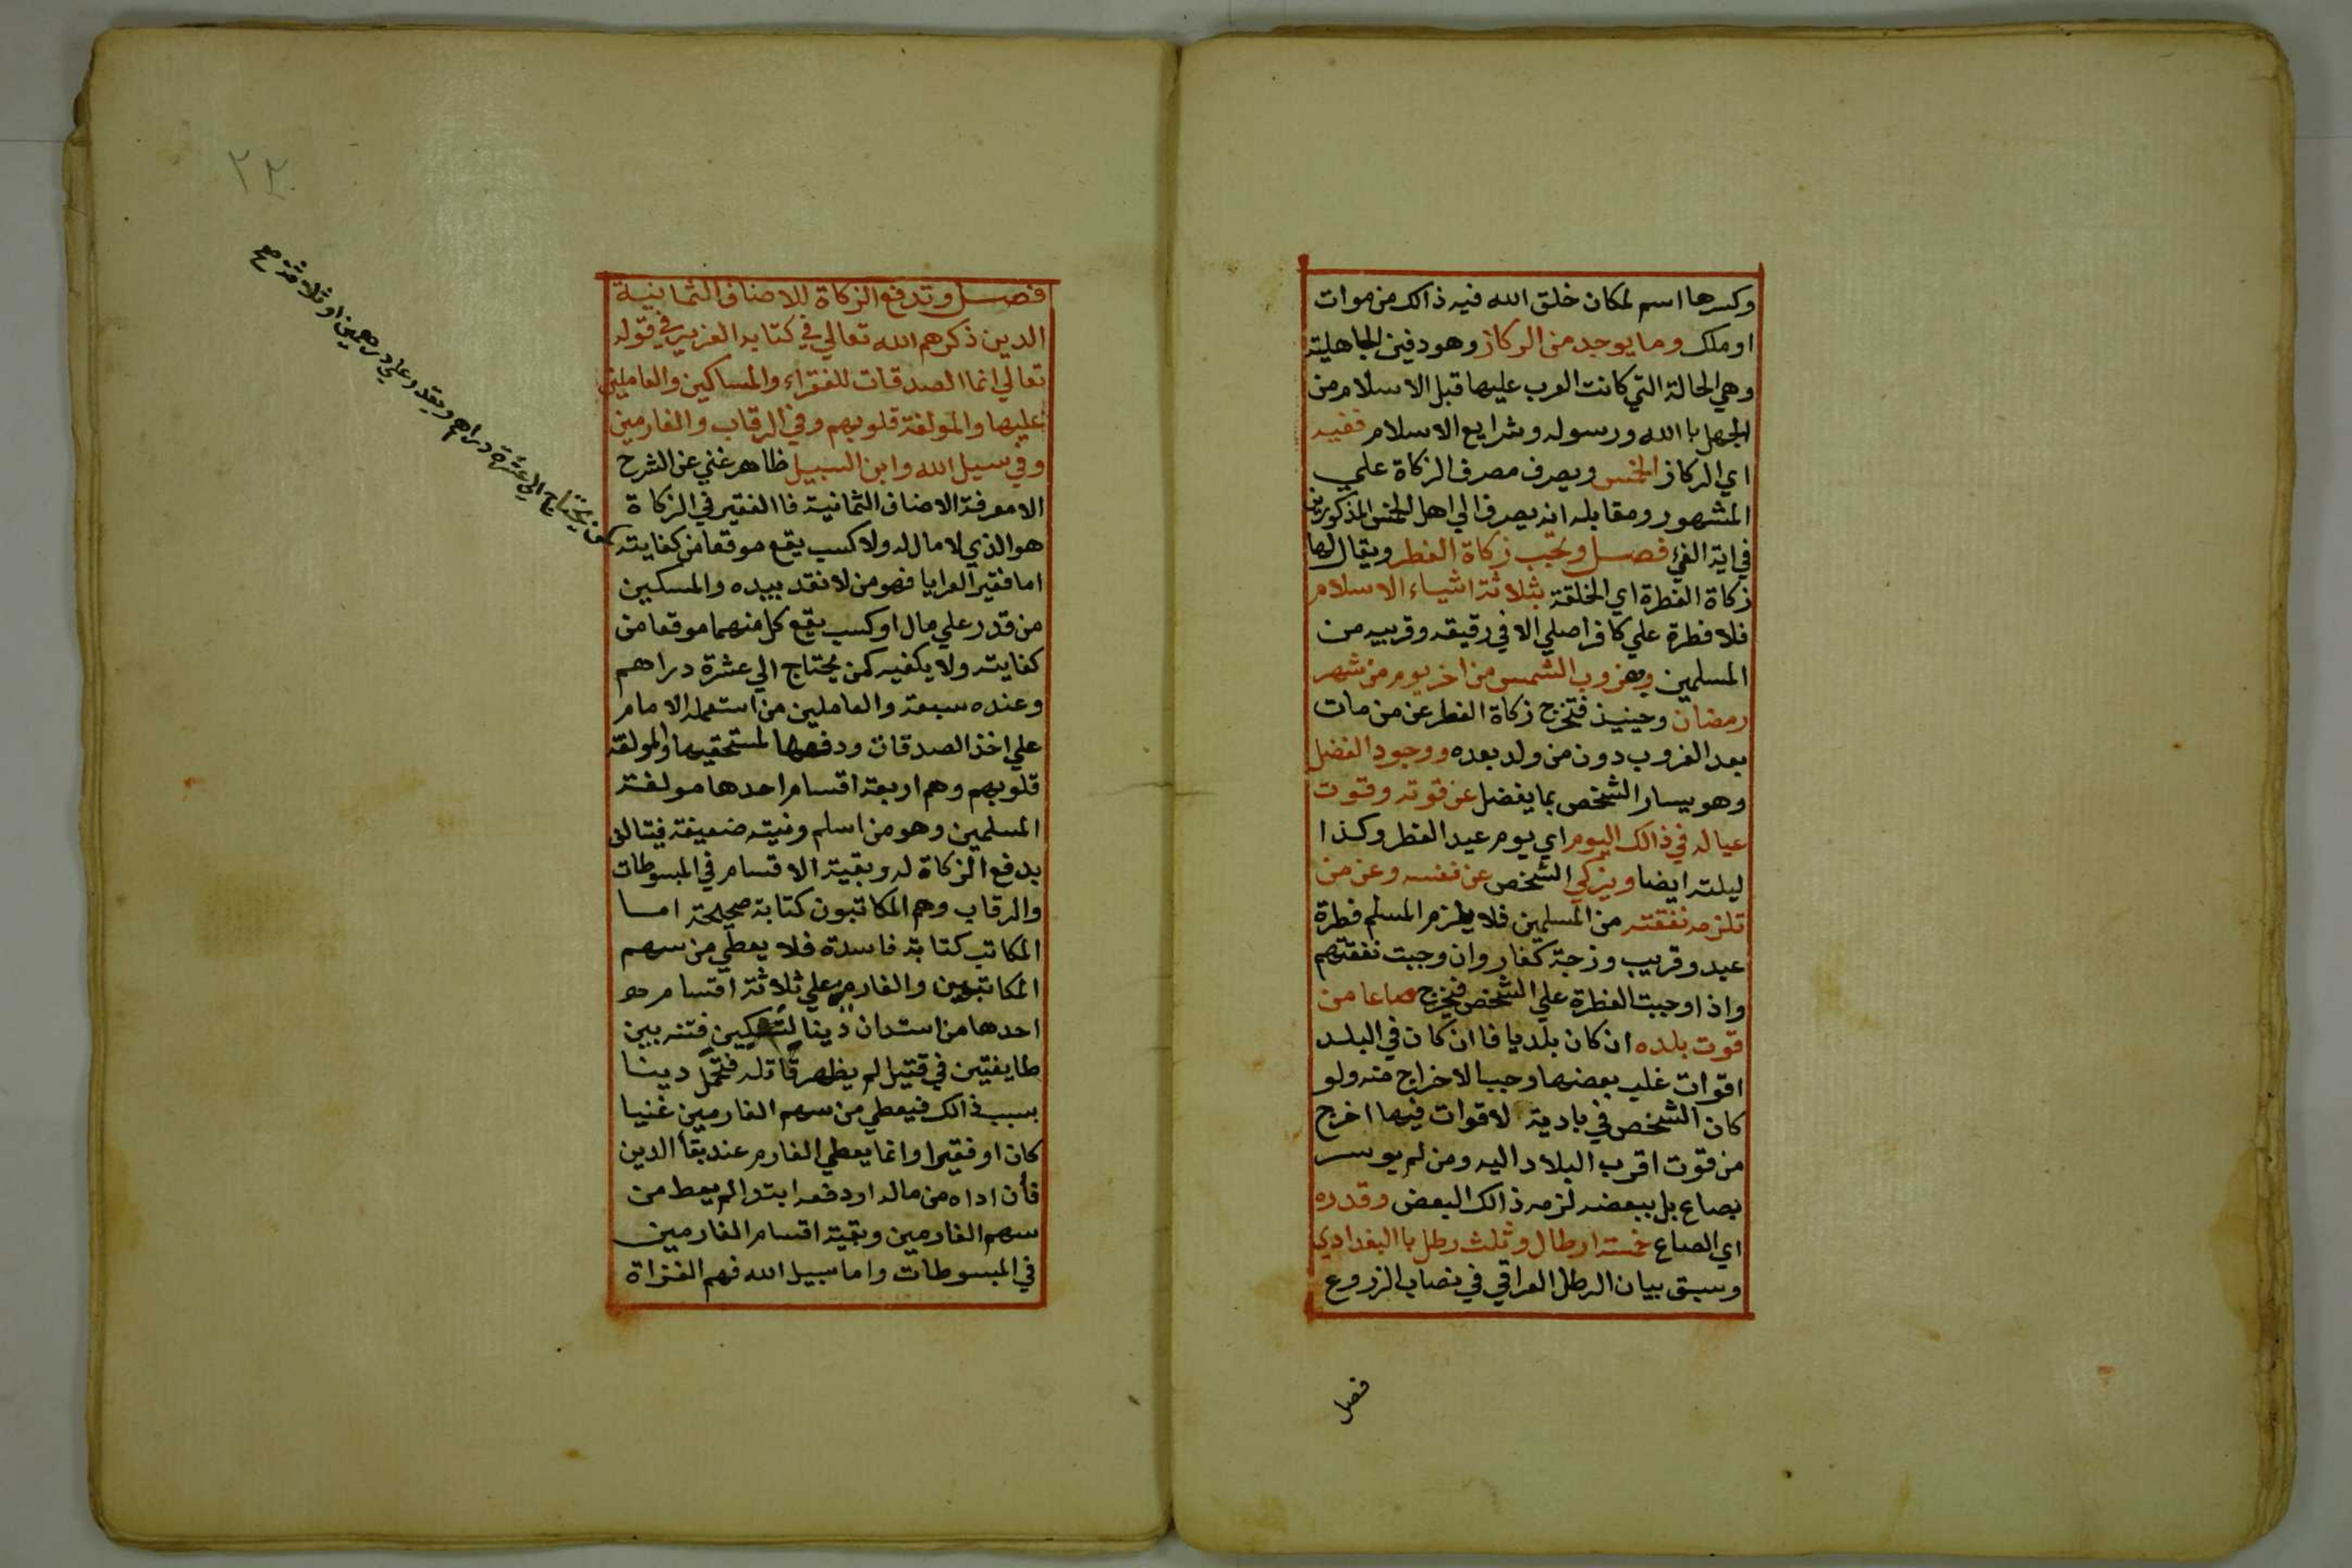 وكسرها اسم لمكان خلق الله فيه ذالك من موات
او ملك وما يوجد من الركاز وهو دفين الجاهلية
وهي الحالة التي كانت العرب عليها قبل الاسلام من
الجهل باالله ورسوله وشرايع الاسلام ففيه
اي الركاز الخمس ويصرف مصرف الزكاة علي
المشهور ومقابله انه يصرف الي اهل الخمس المذكورين
في اية الفئ فصل وتجب زكاة الفطر ويقال لها
زكاة الفطرة اي الخلقة بثلاثة اشياء الاسلام
فلا فطرة علي كافر اصلي الا في رقيقه وقريبه من
المسلمين وبغروب الشمس من اخر يوم من شهر
رمضان وحينيذ فتخرج زكاة الفطر عن من مات
بعد الغروب دون من ولد بعده ووجود الفضل
وهو يسار الشخص بما يفضل عن قوته وقوت
عياله في ذالك اليوم اي يوم عيد الفطر وكذا
ليلته ايضا ويزكي الشخص عن نفسه وعن من
تلزمه نفقته من المسلمين فلا يلزم المسلم فطرة
عبد وقريب وزجة كفار وان وجبت نفقتهم
واذا وجبت الفطرة علي الشخص فيخرج صاعا من
قوت بلده ان كان بلديا فاان كان في البلد
اقوات غلب بعضها وجب الاخراج منه ولو
كان الشخص في بادية لاقوات فيها اخرج
من قوت اقرب البلاد اليه ومن لم يوسر
بصاع بل ببعضه لزمه ذالك البعض وقدره
اي الصاع خمسة ارطال وثلث رطل باالبغدادي
وسبق بيان الرطل العراقي في نصاب الزروع
فصل
٢٣
فصل وتدفع الزكاة للاصناف الثمانية
الدين ذكرهم الله تعالي في كتابه العزيز في قوله
تعالي انما الصدقات للفقراء والمساكين والعاملين
عليها والمولفة قلوبهم وفي الرقاب والغارمين
وفي سبيل الله وابن السبيل ظاهر غني عن الشرح
الا معرفة الاصناف الثمانية فاالفقير في الزكاة
هو الذي لا مال له ولا كسب يقع موقعا من كفايته
يحتاج الي عشرة دراهم ويقدر علي درهمين او ثلاثة صح
اما فقير العرايا فهو من لا نقد بيده والمسكين
من قدر علي مال او كسب يقع كل منهما موقعا من
كفايته ولا يكفيه كمن يحتاج الي عشرة دراهم
وعنده سبعة والعاملين من استعمله الامام
علي اخذ الصدقات ودفعها لمستحقيها والمولفة
قلوبهم وهم اربعة اقسام احدها مولفة
المسلمين وهو من اسلم ونيته ضعيفة فيتالف
بدفع الزكاة له وبقية الاقسام في المبسوطات
والرقاب وهم المكاتبون كتابة صحيحة اما
المكاتب كتابة فاسدة فلا يعطي من سهم
المكاتبين والغارم علي ثلاثة اقسام
احدها من استدان دينا لتسكين فتنه بين
طايفتين في قتيل لم يظهر قاتله فتحمل دينا
بسبب ذالك فيعطي من سهم الغارمين غنيا
كان او فقيرا وانما يعطي الغارم عند بقاا لدين
فأن اداه من ماله او دفعه ابتدا لم يعط من
سهم الغارمين وبقية اقسام الغارمين
في المبسوطات واما سبيل الله فهم الغزاة